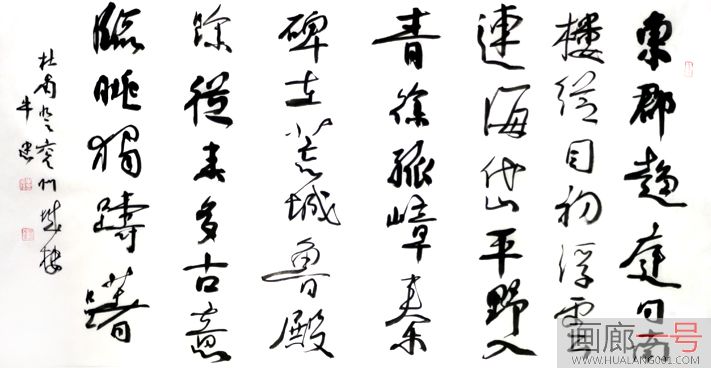 東郡趨庭日南
楼縱目初浮雲
連海岱平野入
青徐孤嶂秦
碑在荒城魯殿
餘從来多古意
臨眺獨躊躇
杜甫登兖州城楼
牛
画廊一号
WWW.HUALANG001.COM